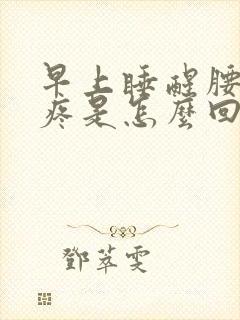 早上睡醒腰
疼是怎麼回
鄧萃雯